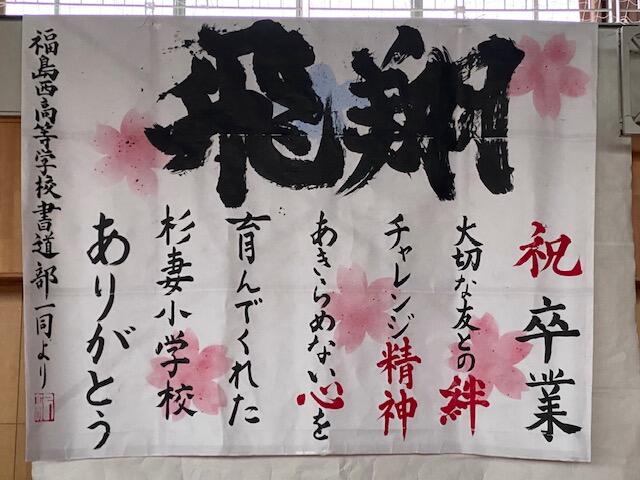 飛翔
祝卒業
大切な友との絆
チャレンジ精神
あきらめない心を
育んでくれた
杉妻小学校
ありがとう
福島西高等学校書道部一同より